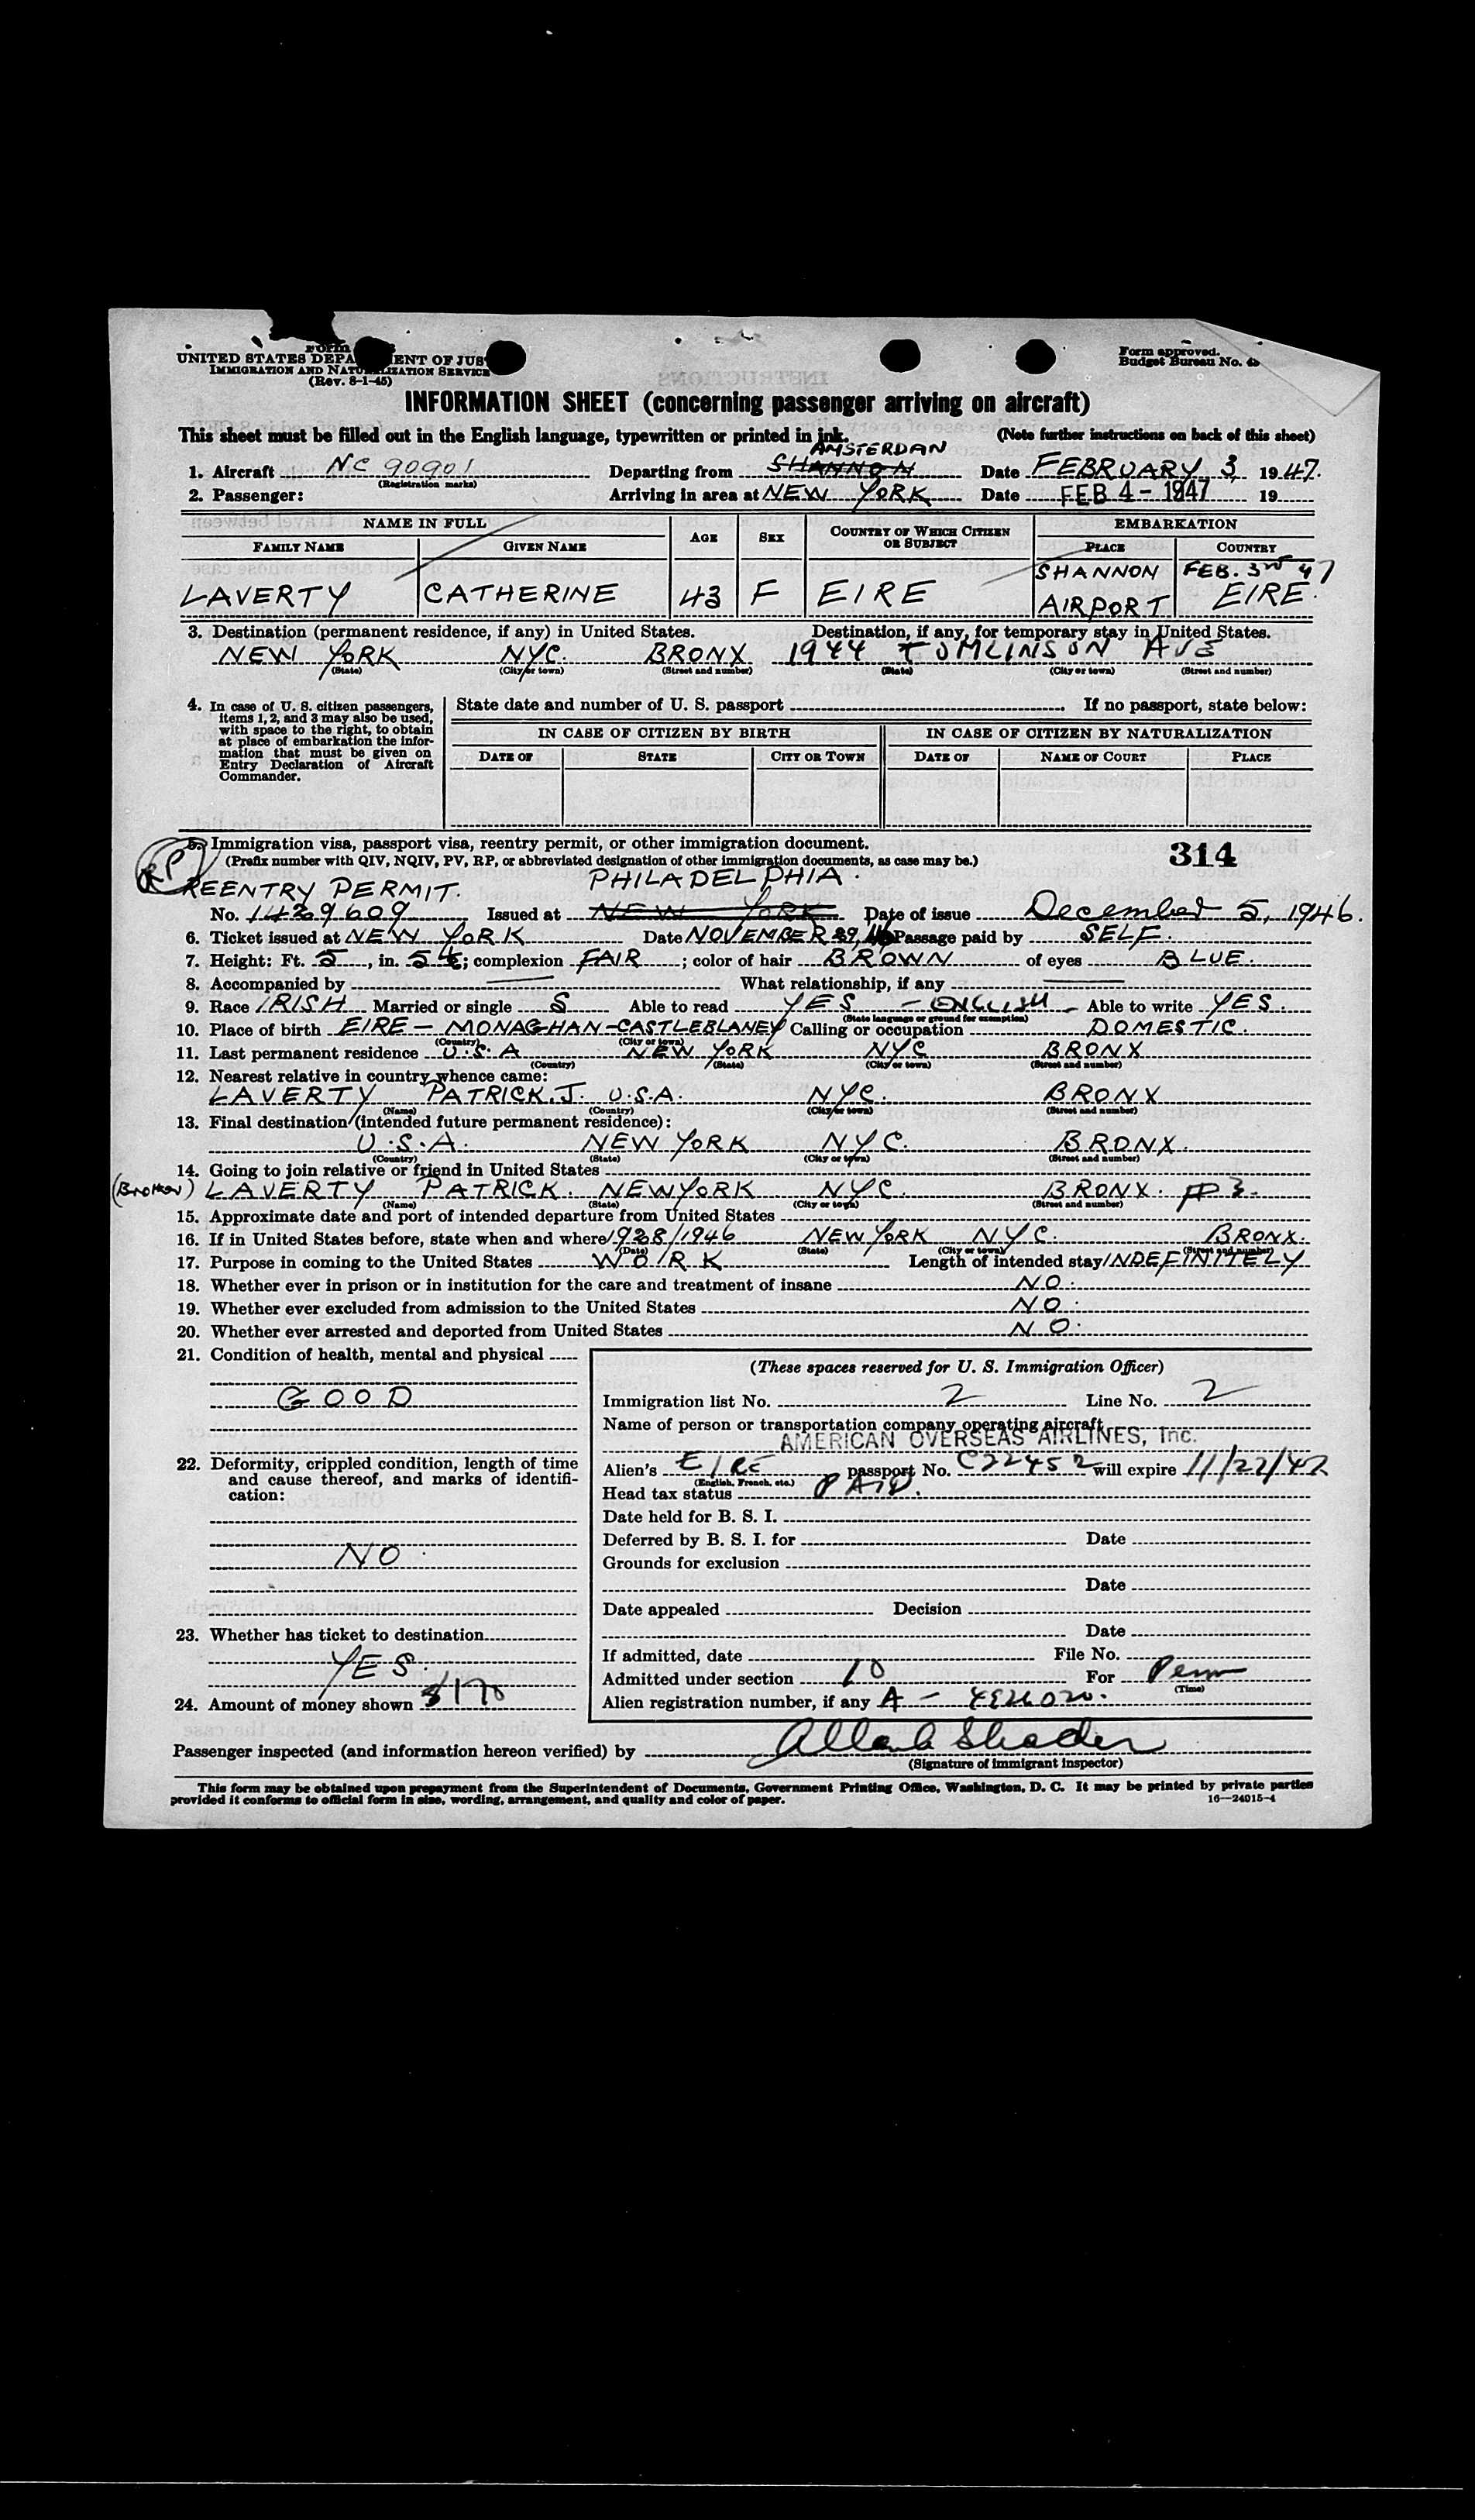 UNITED STATES DEPA ENT OF JUS
IMMIGRATION AND NATURALIZATION SERVICE
(Rev. 8-1-45)
Form approved.
Budget Bureau No.
INFORMATION SHEET (concerning passenger arriving on aircraft)
This sheet must be filled out in the English language, typewritten or printed in ink. (Note further instructions on back of this sheet)
AMSTERDAN
1. Aircraft NC 90901 Departing from SHANNON Date FEBRUARY 3, 1947.
(Registration marks)
2. Passenger: Arriving in area at NEW YORK Date FEB 4 - 1947 19
NAME IN FULL AGE SEX COUNTRY OF WHICH CITIZEN OR SUBJECT EMBARKATION
FAMILY NAME GIVEN NAME PLACE COUNTRY
SHANNON FEB. 3rd 47
LAVERTY CATHERINE 43 F EIRE AIRPORT EIRE.
3. Destination (permanent residence, if any) in United States. Destination, if any, for temporary stay in United States.
NEW YORK NYC. BRONX 1944 TOMLINSON AVE
(State) (City or town) (Street and number) (State) (City or town) (Street and number)
4. In case of U. S. citizen passengers, items 1, 2, and 3 may also be used, with space to the right, to obtain at place of embarkation the information that must be given on Entry Declaration of Aircraft Commander.
State date and number of U. S. passport If no passport, state below:
IN CASE OF CITIZEN BY BIRTH IN CASE OF CITIZEN BY NATURALIZATION
DATE OF STATE CITY OR TOWN DATE OF NAME OF COURT PLACE
RP
5. Immigration visa, passport visa, reentry permit, or other immigration document. 314
(Prefix number with QIV, NQIV, PV, RP, or abbreviated designation of other immigration documents, as case may be.)
REENTRY PERMIT. PHILADELPHIA.
No. 1429609 Issued at NEW YORK Date of issue December 5, 1946.
6. Ticket issued at NEW YORK Date NOVEMBER 29, Passage paid by SELF.
7. Height: Ft. 5, in. ; complexion FAIR; color of hair BROWN of eyes BLUE.
8. Accompanied by What relationship, if any
9. Race IRISH Married or single S Able to read YES - ENGLISH Able to write YES.
(State language or ground for exemption)
10. Place of birth EIRE - MONAGHAN - CASTLEBLANEY Calling or occupation DOMESTIC.
(Country) (City or town)
11. Last permanent residence U.S.A NEW YORK NYC BRONX
(Country) (State) (City or town) (Street and number)
12. Nearest relative in country whence came:
LAVERTY PATRICK.J. U.S.A. NYC. BRONX
(Name) (Country) (City or town) (Street and number)
13. Final destination (intended future permanent residence):
U.S.A. NEW YORK NYC. BRONX.
(Country) (State) (City or town) (Street and number)
14. Going to join relative or friend in United States
(Brother) LAVERTY PATRICK. NEWYORK NYC. BRONX.
(Name) (State) (City or town) (Street and number)
15. Approximate date and port of intended departure from United States
16. If in United States before, state when and where 1928/1946 NEW YORK NYC. BRONX.
(Date) (State) (City or town) (Street and number)
17. Purpose in coming to the United States WORK Length of intended stay INDEFINITELY
18. Whether ever in prison or in institution for the care and treatment of insane NO.
19. Whether ever excluded from admission to the United States NO.
20. Whether ever arrested and deported from United States NO.
21. Condition of health, mental and physical
GOOD
22. Deformity, crippled condition, length of time and cause thereof, and marks of identification:
NO.
23. Whether has ticket to destination
YES.
24. Amount of money shown $170
(These spaces reserved for U. S. Immigration Officer)
Immigration list No. 2 Line No. 2
Name of person or transportation company operating aircraft
AMERICAN OVERSEAS AIRLINES, Inc.
Alien's EIRE passport No. C22452 will expire 11/22/47
(English, French, etc.)
Head tax status PAID.
Date held for B. S. I.
Deferred by B. S. I. for Date
Grounds for exclusion
Date
Date appealed Decision
Date
If admitted, date File No.
Admitted under section 10 For Perm
(Time)
Alien registration number, if any A -
Passenger inspected (and information hereon verified) by
(Signature of immigrant inspector)
This form may be obtained upon prepayment from the Superintendent of Documents, Government Printing Office, Washington, D. C. It may be printed by private parties
provided it conforms to official form in size, wording, arrangement, and quality and color of paper. 16—24015-4